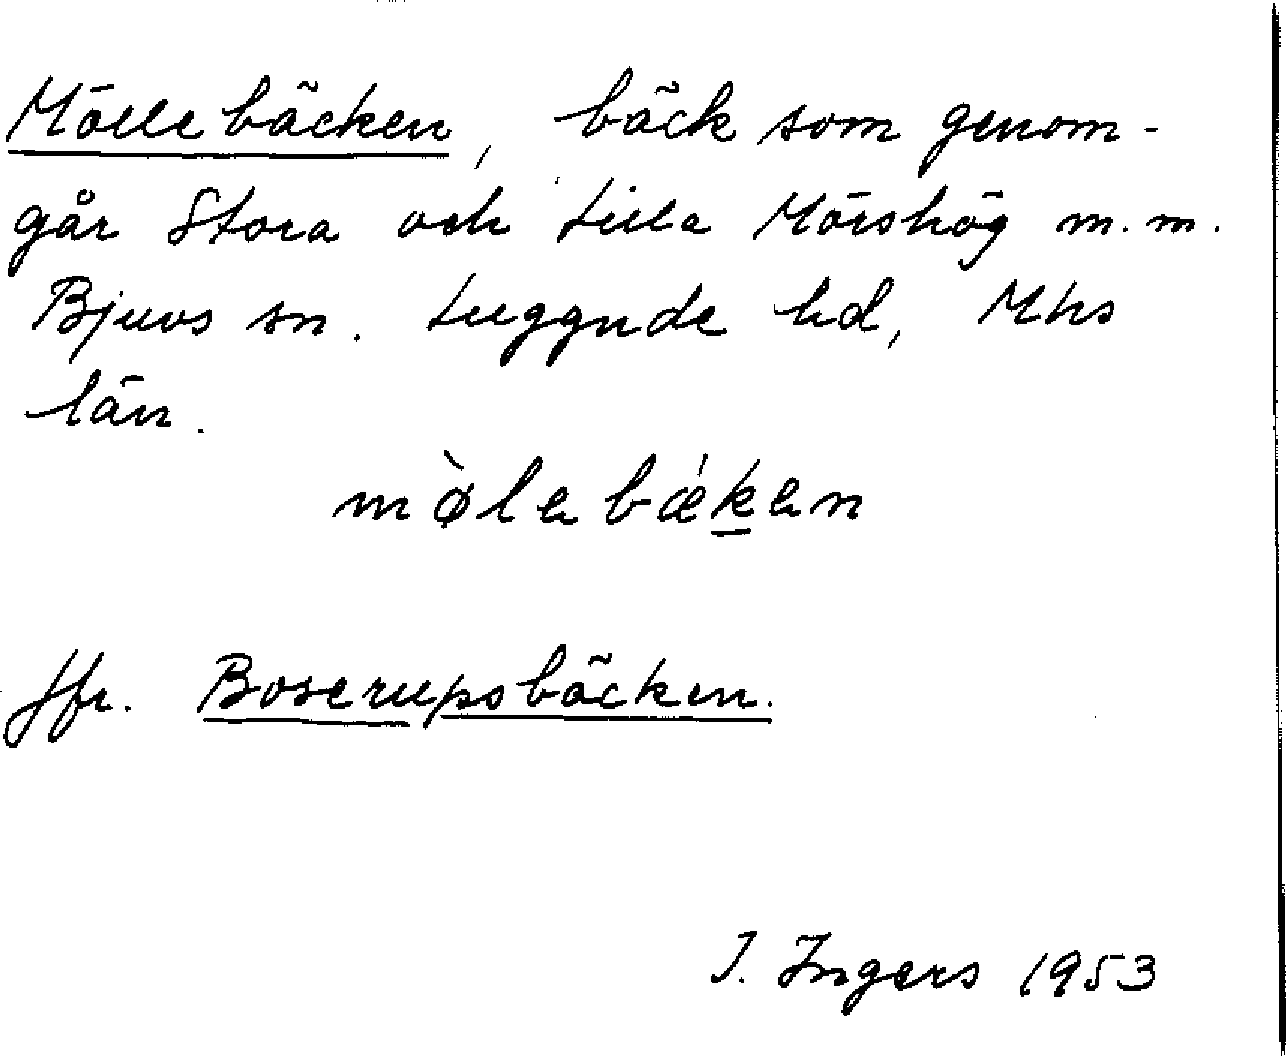 Möllebäcken, bäck som genom-
går Stora och Lilla Mörshög m.m.
Bjuvs sn. Luggude hd, Mhs
län.
mø̀lebǽḵen
Jfr. Boserupsbäcken.
I. Ingers 1953